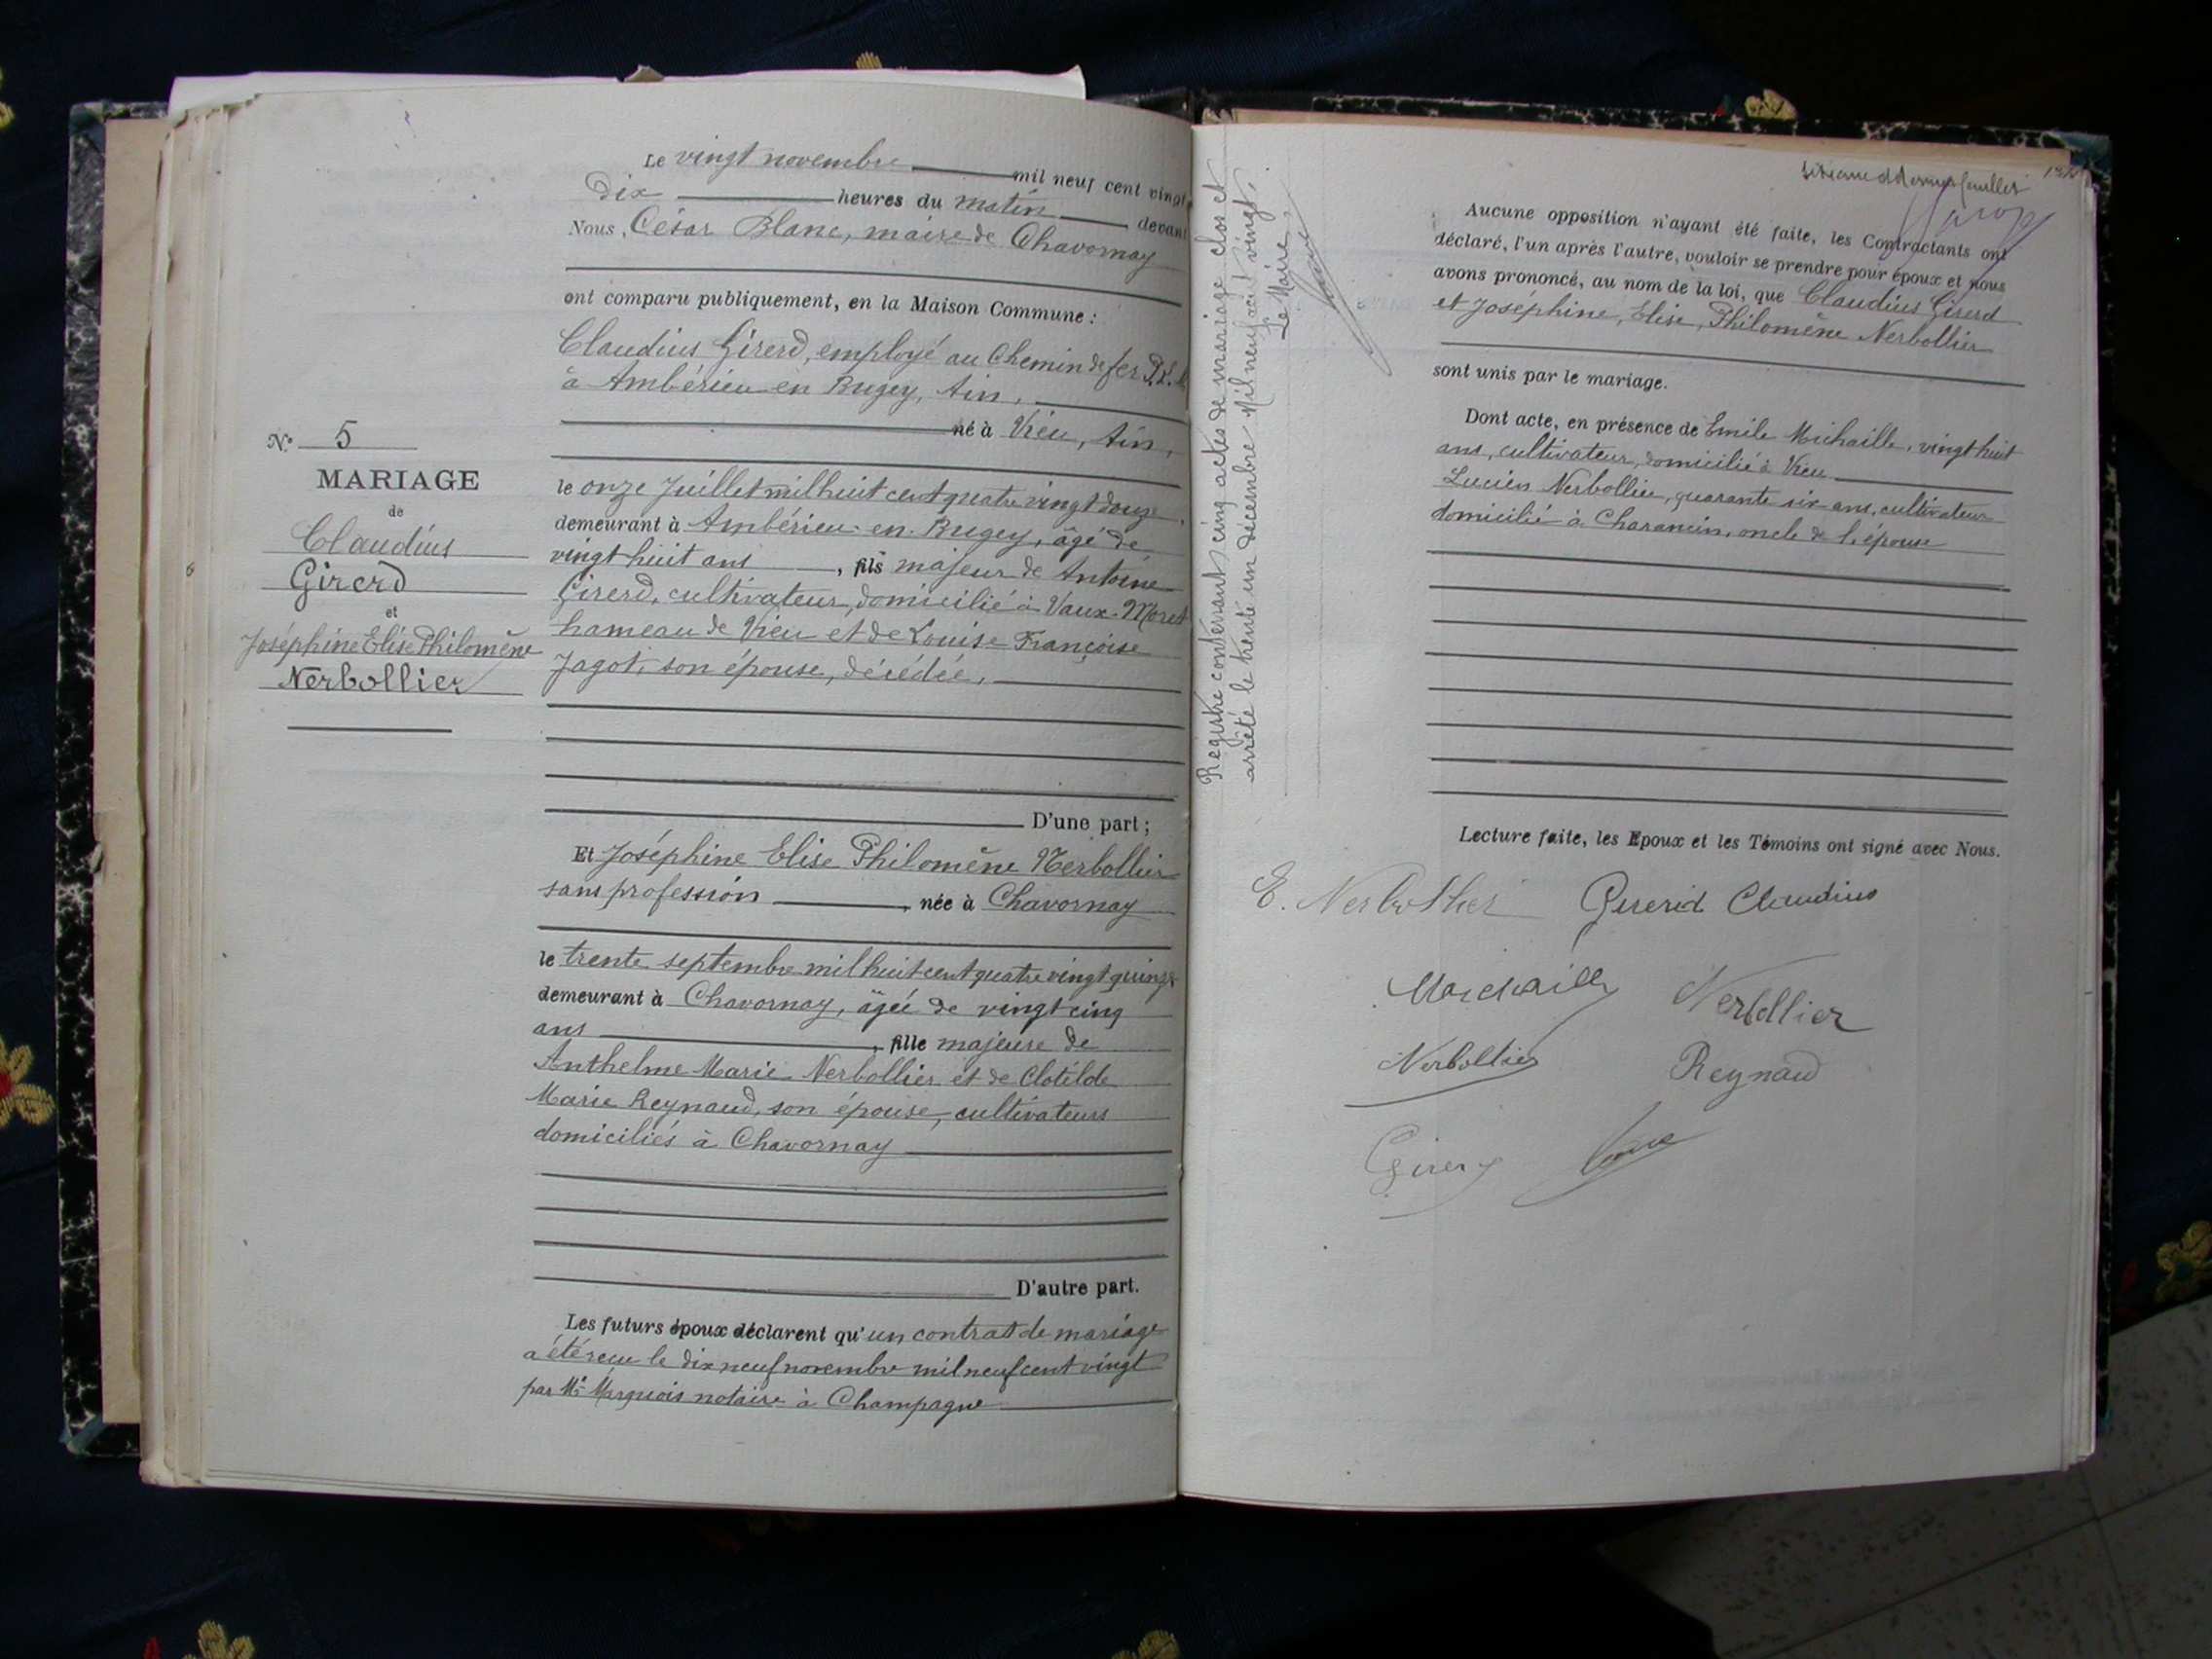 Le vingt novembre mil neuf cent vingt
Dix heures du matin devant
Nous, César Blanc, maire de Chavornay
ont comparu publiquement, en la Maison Commune :
Claudius Girerd, employé au Chemin de fer P.L.M.
à Ambérieu en Bugey, Ain,
né à Vieu, Ain,
le onze Juillet mil huit cent quatre vingt douze,
demeurant à Ambérieu-en-Bugey, âgé de
vingt huit ans, fils majeur de Antoine
Girerd, cultivateur, domicilié à Vaux-Moret
hameau de Vieu et de Louise Françoise
Jagot, son épouse, décédée,
D'une part ;
N° 5
MARIAGE
de
Claudius
Girerd
et
Joséphine Elise Philomène
Nerbollier
Et Joséphine Elise Philomène Nerbollier
sans profession, née à Chavornay
le trente septembre mil huit cent quatre vingt quinze
demeurant à Chavornay, âgée de vingt cinq
ans, fille majeure de
Anthelme Marie Nerbollier et de Clotilde
Marie Reynaud, son épouse, cultivateurs
domiciliés à Chavornay
D'autre part.
Les futurs époux déclarent qu'un contrat de mariage
a été reçu le dix neuf novembre mil neuf cent vingt
par Me Marquois notaire à Champagne
Registre contenant cinq actes de mariage clos et
arrêté le trente un décembre Mil neuf cent vingt.
Le Maire,
Blanc
et dernier feuillet
Aucune opposition n'ayant été faite, les Contractants ont
déclaré, l'un après l'autre, vouloir se prendre pour époux et nous
avons prononcé, au nom de la loi, que Claudius Girerd
et Joséphine, Elise, Philomène Nerbollier
sont unis par le mariage.
Dont acte, en présence de Emile Michaille, vingt huit
ans, cultivateur, domicilié à Vieu
Lucien Nerbollier, quarante six ans, cultivateur
domicilié à Charancin, oncle de l'épouse
Lecture faite, les Epoux et les Témoins ont signé avec Nous.
E. Nerbollier Girerd Claudius
Michaille Nerbollier
Nerbollier Reynaud
Girerd Blanc